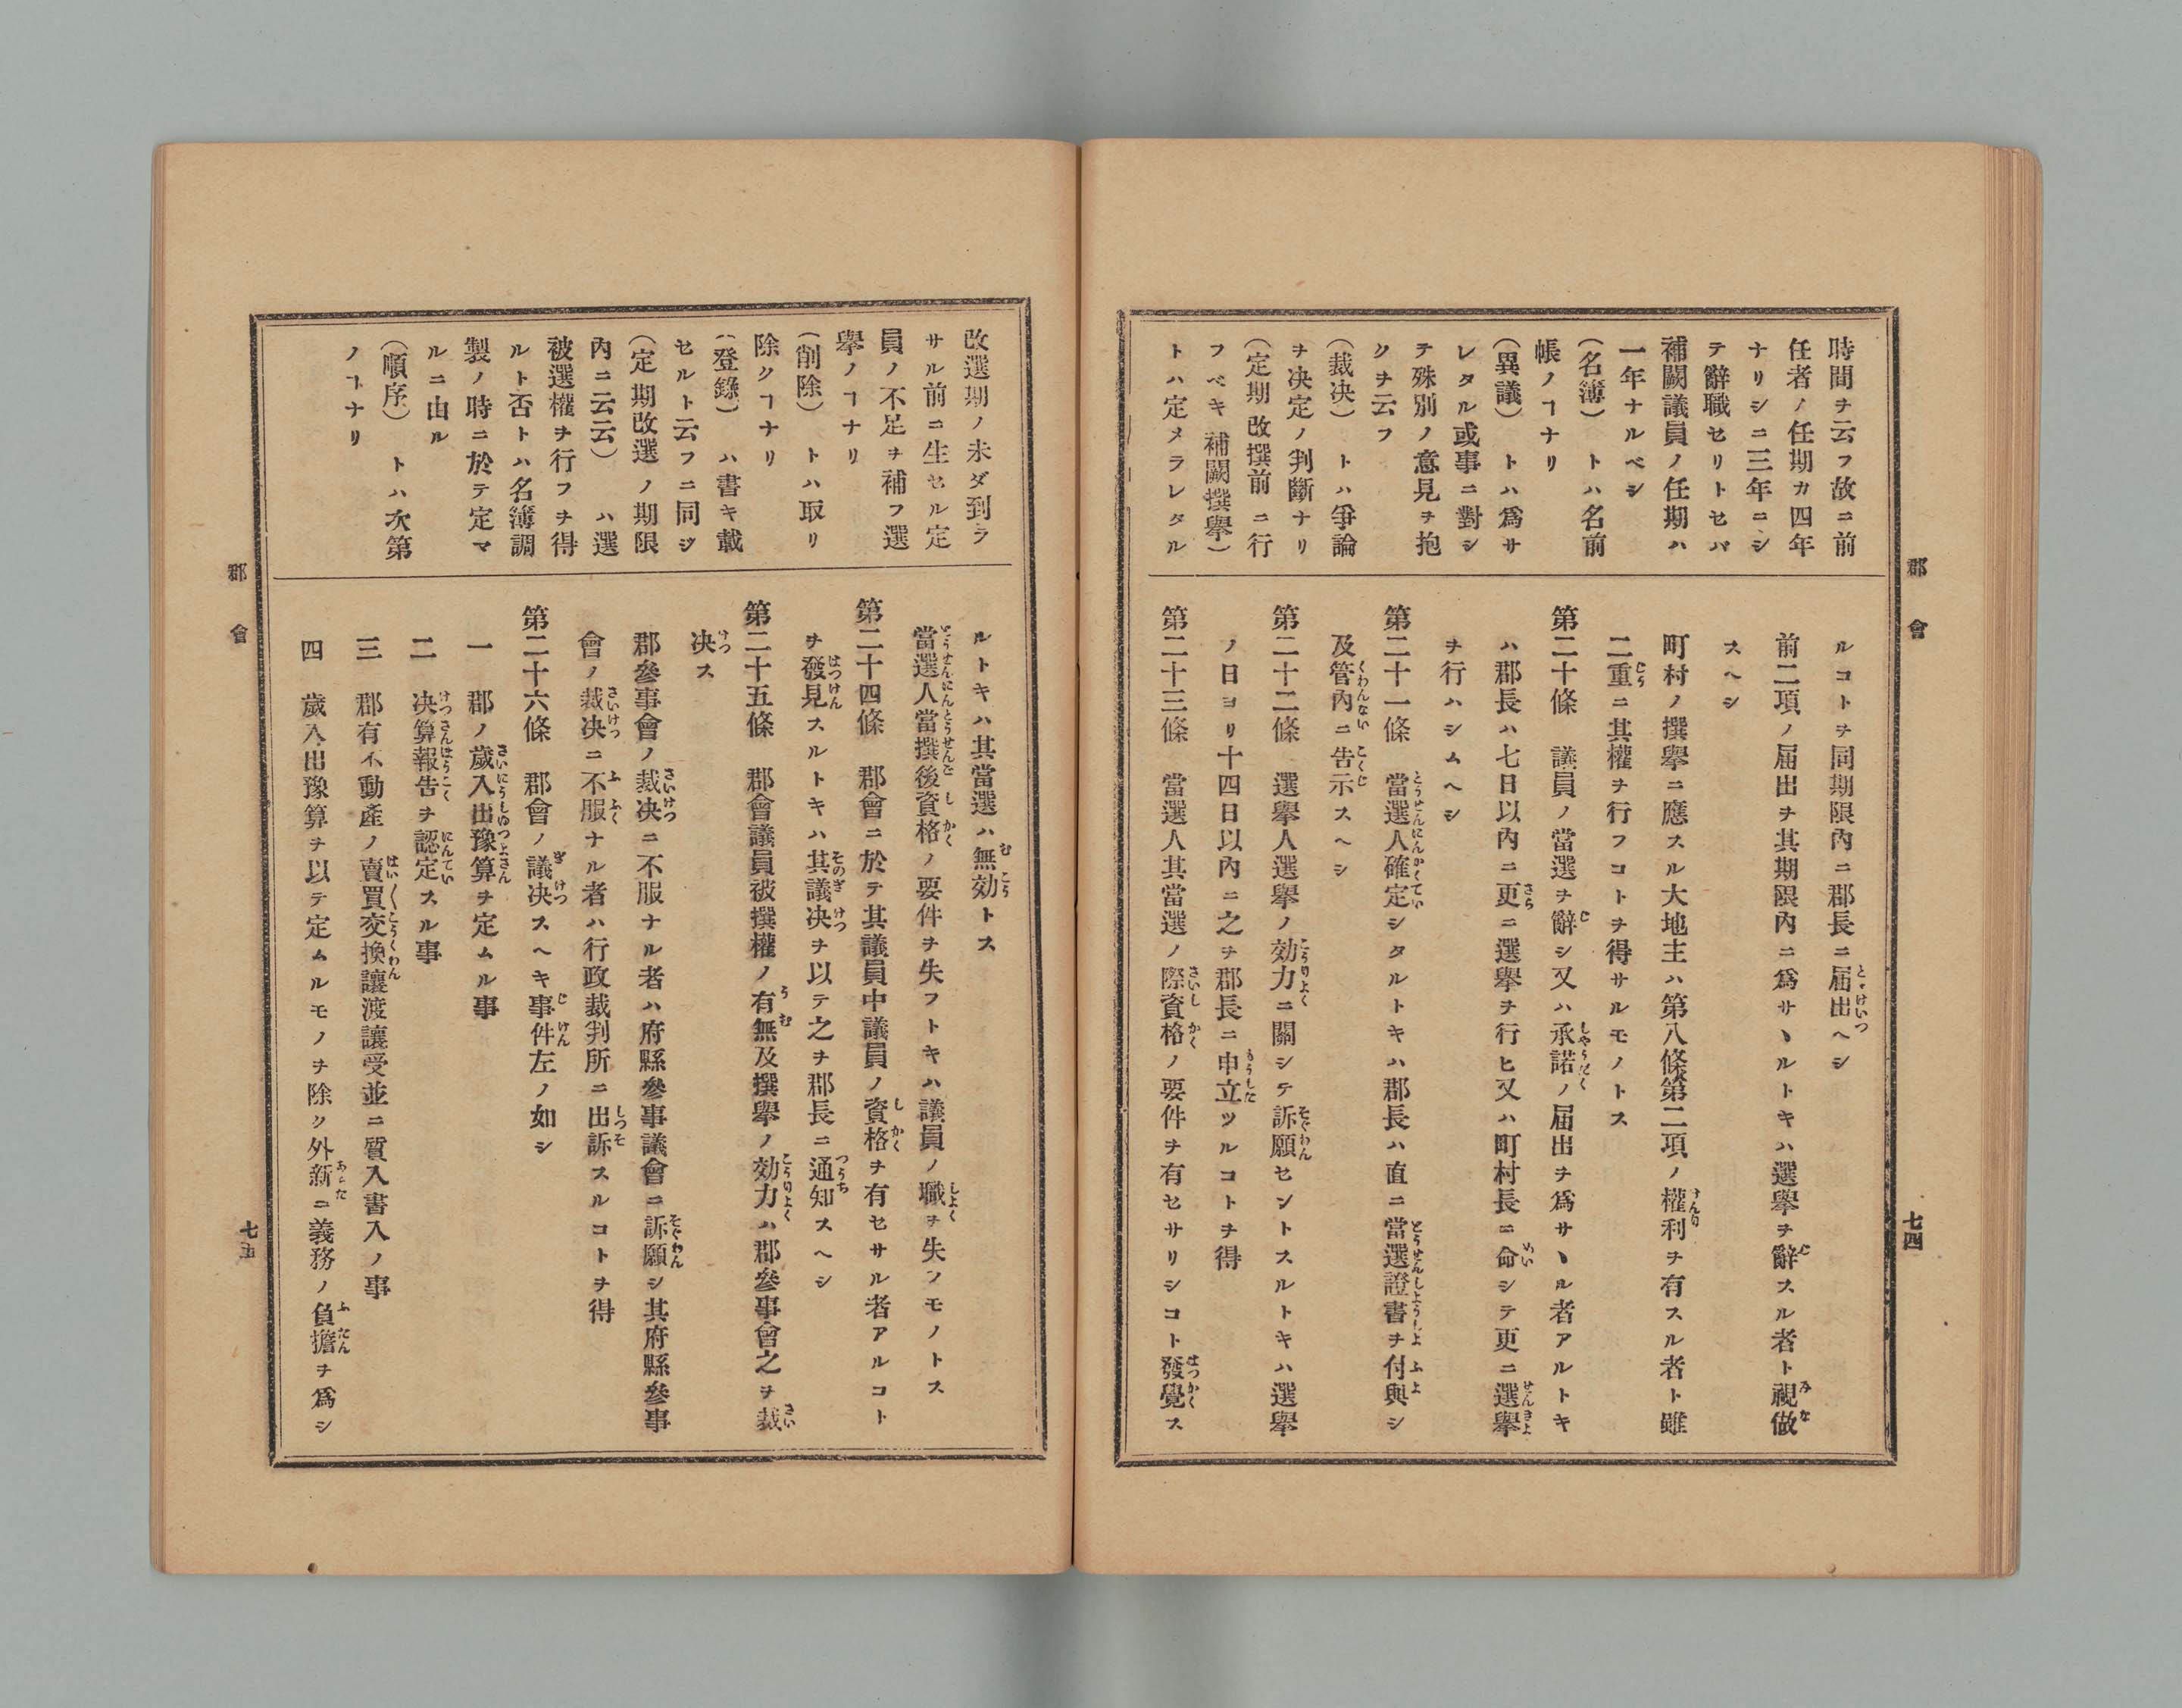 郡會
七四
時間ヲ云フ故ニ前
任者ノ任期カ四年
ナリシニ三年ニシ
テ辭職セリトセバ
補闕議員ノ任期ハ
一年ナルベシ
(名簿) トハ名前
帳ノヿナリ
(異議) トハ爲サ
レタル或事ニ對シ
テ殊別ノ意見ヲ抱
クヲ云フ
(裁决) トハ爭論
ヲ决定ノ判斷ナリ
(定期改撰前ニ行
フベキ補闕撰擧)
トハ定メラレタル
ルコトヲ同期限內ニ郡長ニ届出ヘシ
前二項ノ届出ヲ其期限內ニ爲サヽルトキハ選擧ヲ辭スル者ト視做
スヘシ
町村ノ撰擧ニ應スル大地主ハ第八條第二項ノ權利ヲ有スル者ト雖
二重ニ其權ヲ行フコトヲ得サルモノトス
第二十條 議員ノ當選ヲ辭シ又ハ承諾ノ届出ヲ爲サヽル者アルトキ
ハ郡長ハ七日以內ニ更ニ選擧ヲ行ヒ又ハ町村長ニ命シテ更ニ選擧
ヲ行ハシムヘシ
第二十一條 當選人確定シタルトキハ郡長ハ直ニ當選證書ヲ付與シ
及管內ニ告示スヘシ
第二十二條 選擧人選擧ノ効力ニ關シテ訴願セントスルトキハ選擧
ノ日ヨリ十四日以內ニ之ヲ郡長ニ申立ツルコトヲ得
第二十三條 當選人其當選ノ際資格ノ要件ヲ有セサリシコト發覺ス
改選期ノ未ダ到ラ
サル前ニ生セル定
員ノ不足ヲ補フ選
擧ノヿナリ
(削除) トハ取リ
除クヿナリ
(登錄) ハ書キ載
セルト云フニ同ジ
(定期改選ノ期限
內ニ云云) ハ選
被選權ヲ行フヲ得
ルト否トハ名簿調
製ノ時ニ於テ定マ
ルニ由ル
(順序) トハ次第
ノヿナリ
ルトキハ其當選ハ無効トス
當選人當撰後資格ノ要件ヲ失フトキハ議員ノ職ヲ失フモノトス
第二十四條 郡會ニ於テ其議員中議員ノ資格ヲ有セサル者アルコト
ヲ發見スルトキハ其議决ヲ以テ之ヲ郡長ニ通知スヘシ
第二十五條 郡會議員被撰權ノ有無及撰擧ノ効力ハ郡參事會之ヲ裁
决ス
郡參事會ノ裁决ニ不服ナル者ハ府縣參事議會ニ訴願シ其府縣參事
會ノ裁决ニ不服ナル者ハ行政裁判所ニ出訴スルコトヲ得
第二十六條 郡會ノ議决スヘキ事件左ノ如シ
一 郡ノ歲入出豫算ヲ定ムル事
二 决算報告ヲ認定スル事
三 郡有不動產ノ賣買交換讓渡讓受並ニ質入書入ノ事
四 歲入出豫算ヲ以テ定ムルモノヲ除ク外新ニ義務ノ負擔ヲ爲シ
郡會
七五